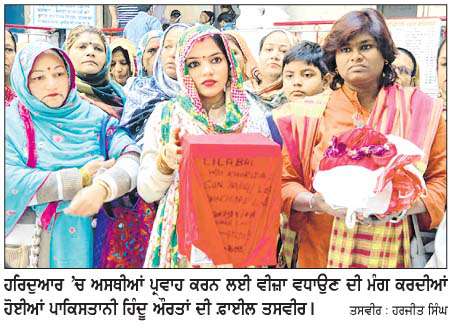 LILABAI
ਹਰਿਦੁਆਰ ’ਚ ਅਸਥੀਆਂ ਪ੍ਰਵਾਹ ਕਰਨ ਲਈ ਵੀਜ਼ਾ ਵਧਾਉਣ ਦੀ ਮੰਗ ਕਰਦੀਆਂ
ਹੋਈਆਂ ਪਾਕਿਸਤਾਨੀ ਹਿੰਦੂ ਔਰਤਾਂ ਦੀ ਫ਼ਾਈਲ ਤਸਵੀਰ। ਤਸਵੀਰ : ਹਰਜੀਤ ਸਿੰਘ